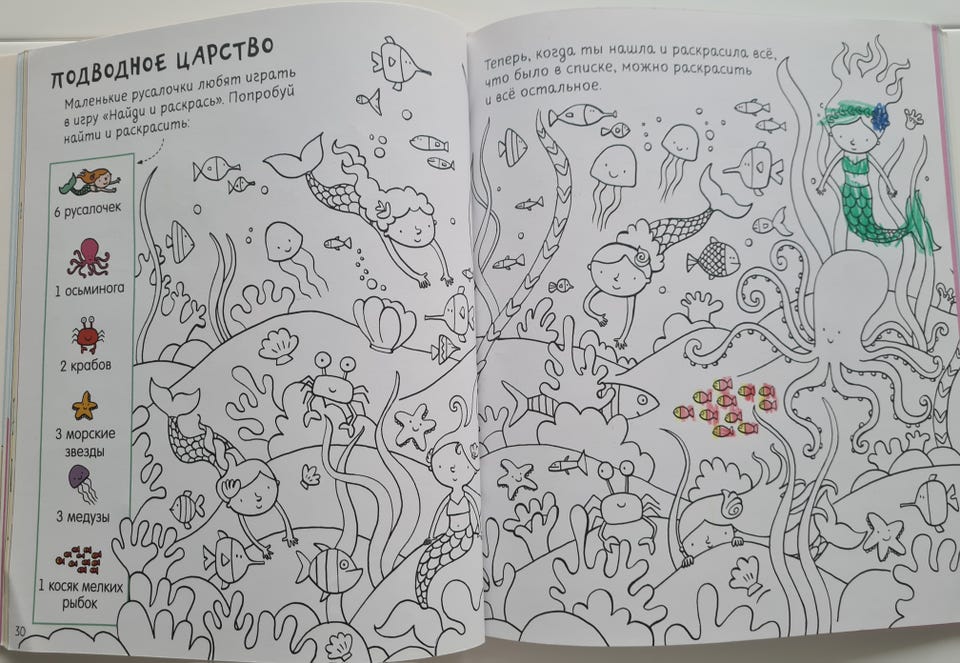 ПОДВОДНОЕ ЦАРСТВО
Маленькие русалочки любят играть
в игру «Найди и раскрась». Попробуй
найти и раскрасить:
6 русалочек
1 осьминога
2 крабов
3 морские
звезды
3 медузы
1 косяк мелких
рыбок
30
Теперь, когда ты нашла и раскрасила всё,
что было в списке, можно раскрасить
и всё остальное.